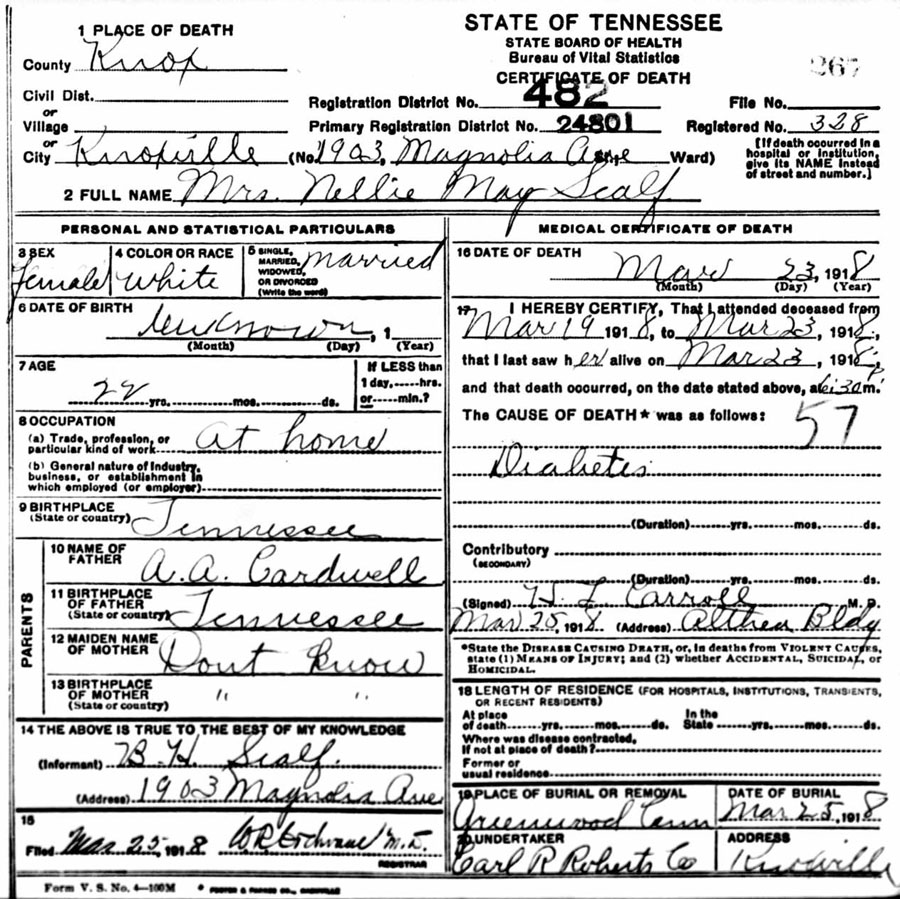 STATE OF TENNESSEE
STATE BOARD OF HEALTH
Bureau of Vital Statistics
CERTIFICATE OF DEATH
267
1 PLACE OF DEATH
County Knox
Civil Dist.
or
Village
or
City Knoxville (No. 1903, Magnolia Ave Ward)
Registration District No. 482 File No.
Primary Registration District No. 24801 Registered No. 328
[If death occurred in a
hospital or institution,
give its NAME instead
of street and number.]
2 FULL NAME Mrs. Nellie May Scalf
PERSONAL AND STATISTICAL PARTICULARS
3 SEX Female
4 COLOR OR RACE White
5 SINGLE, MARRIED, WIDOWED, OR DIVORCED (Write the word) Married
6 DATE OF BIRTH
Unknown, 1
(Month) (Day) (Year)
7 AGE
22 yrs. mos. ds.
If LESS than
1 day, hrs.
or min.?
8 OCCUPATION
(a) Trade, profession, or
particular kind of work At home
(b) General nature of Industry,
business, or establishment in
which employed (or employer)
9 BIRTHPLACE
(State or country) Tennessee
PARENTS
10 NAME OF
FATHER A. A. Cardwell
11 BIRTHPLACE
OF FATHER
(State or country) Tennessee
12 MAIDEN NAME
OF MOTHER Dont Know
13 BIRTHPLACE
OF MOTHER
(State or country) " "
14 THE ABOVE IS TRUE TO THE BEST OF MY KNOWLEDGE
(Informant) B. H. Scalf
(Address) 1903 Magnolia Ave
15
Filed Mar 25, 1918 W R Cochrane M.D.
REGISTRAR
MEDICAL CERTIFICATE OF DEATH
16 DATE OF DEATH
Mar 23, 1918
(Month) (Day) (Year)
17 I HEREBY CERTIFY, That I attended deceased from
Mar 19 1918, to Mar 23, 1918,
that I last saw her alive on Mar 23, 1918,
and that death occurred, on the date stated above, at 6:30 P m.
The CAUSE OF DEATH* was as follows:
57
Diabetes
(Duration) yrs. mos. ds.
Contributory
(SECONDARY)
(Duration) yrs. mos. ds.
(Signed) H. L Carroll M.D.
Mar 25, 1918 (Address) Althea Bldg
*State the DISEASE CAUSING DEATH, or, in deaths from VIOLENT CAUSES,
state (1) MEANS OF INJURY; and (2) whether ACCIDENTAL, SUICIDAL, or
HOMICIDAL.
18 LENGTH OF RESIDENCE (FOR HOSPITALS, INSTITUTIONS, TRANSIENTS,
OR RECENT RESIDENTS)
At place In the
of death yrs. mos. ds. State yrs. mos. ds.
Where was disease contracted,
If not at place of death?
Former or
usual residence
19 PLACE OF BURIAL OR REMOVAL
Greenwood Cem
DATE OF BURIAL
Mar 25, 1918
20 UNDERTAKER
Carl R Roberts Co
ADDRESS
Knoxville
Form V. S. No. 4—100M